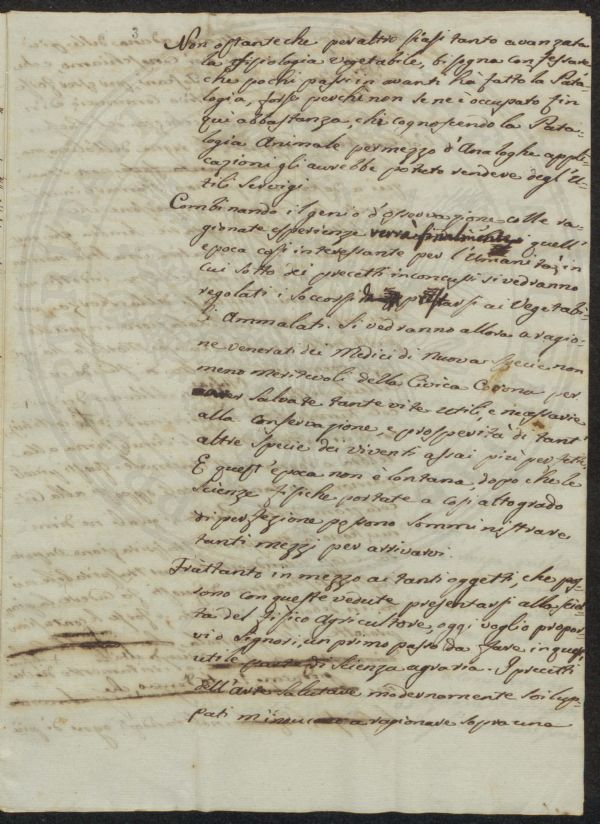 3
Non ostante che per altro siasi tanto avanzata
la Fisiologia Vegetabile, bisogna confessare
che pochi passi in avanti ha fatto la Pato-
logia, forse perchè non se ne è occupato fin
quì abbastanza, chi cognoscendo la Pato-
logia Animale per mezzo d'Analoghe appli-
cazioni gli avrebbe potuto rendere degl'U-
tili Servigi.
Combinando il genio d'osservazione colle ra-
gionate esperienze verrà finalmente quell'
epoca così interessante per l'Umanità, in
cui sotto dei precetti inconcussi si vedranno
regolati i soccorsi da prestarsi ai Vegetabi-
li Ammalati. Si vedranno allora a ragio-
ne venerati dei Medici di nuova Specie non
meno meritevoli della Civica Corona per
salvate tante vite utili, e necessarie
alla conservazione, e prosperità di tant'
altre specie dei viventi assai più perfette,
E quest'epoca non è lontana, dopo che le
Scienze fisiche portate a così alto grado
di perfezione possono somministrare
tanti mezzi per arrivarvi.
Frattanto in mezzo ai tanti oggetti, che pos-
sono con queste vedute presentarsi alla
del Fisico Agricultore, oggi voglio propor-
vi o Signori, un primo passo da fare in quest'
utile di scienza agraria. I precetti
dell'Arte Salutare modernamente svilup-
pati a ragionare sopra una